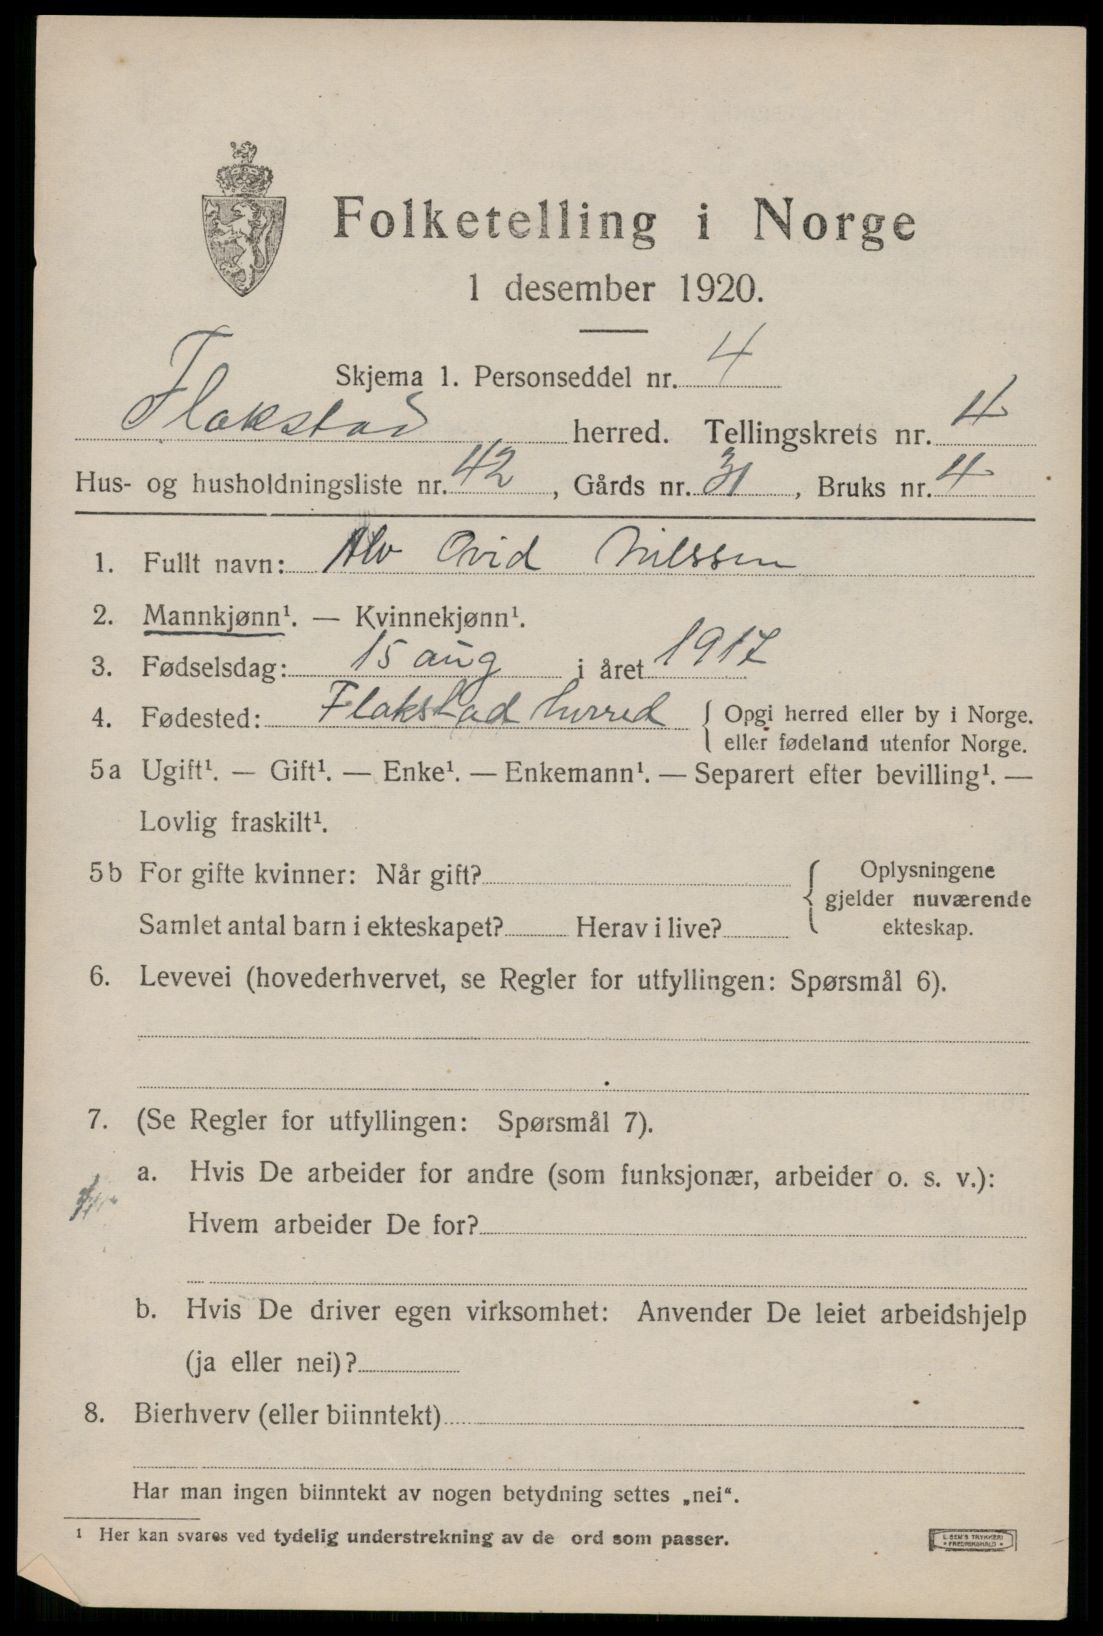 Folketelling i Norge
1 desember 1920.
Skjema 1. Personseddel nr. 4
Flakstad herred. Tellingskrets nr. 4
Hus- og husholdningsliste nr. 42, Gårds nr. 31, Bruks nr. 4
1. Fullt navn: Alv Ovid Nilssen
2. Mannkjønn¹. — Kvinnekjønn¹.
3. Fødselsdag: 15 aug i året 1917
4. Fødested: Flakstad herred { Opgi herred eller by i Norge.
eller fødeland utenfor Norge.
5a Ugift¹. — Gift¹. — Enke¹. — Enkemann¹. — Separert efter bevilling¹. —
Lovlig fraskilt¹.
5b For gifte kvinner: Når gift? { Oplysningene
gjelder nuværende
Samlet antal barn i ekteskapet? Herav i live? ekteskap.
6. Levevei (hovederhvervet, se Regler for utfyllingen: Spørsmål 6).
7. (Se Regler for utfyllingen: Spørsmål 7).
a. Hvis De arbeider for andre (som funksjonær, arbeider o. s. v.):
Hvem arbeider De for?
b. Hvis De driver egen virksomhet: Anvender De leiet arbeidshjelp
(ja eller nei)?
8. Bierhverv (eller biinntekt)
Har man ingen biinntekt av nogen betydning settes „nei“.
¹ Her kan svares ved tydelig understrekning av de ord som passer.